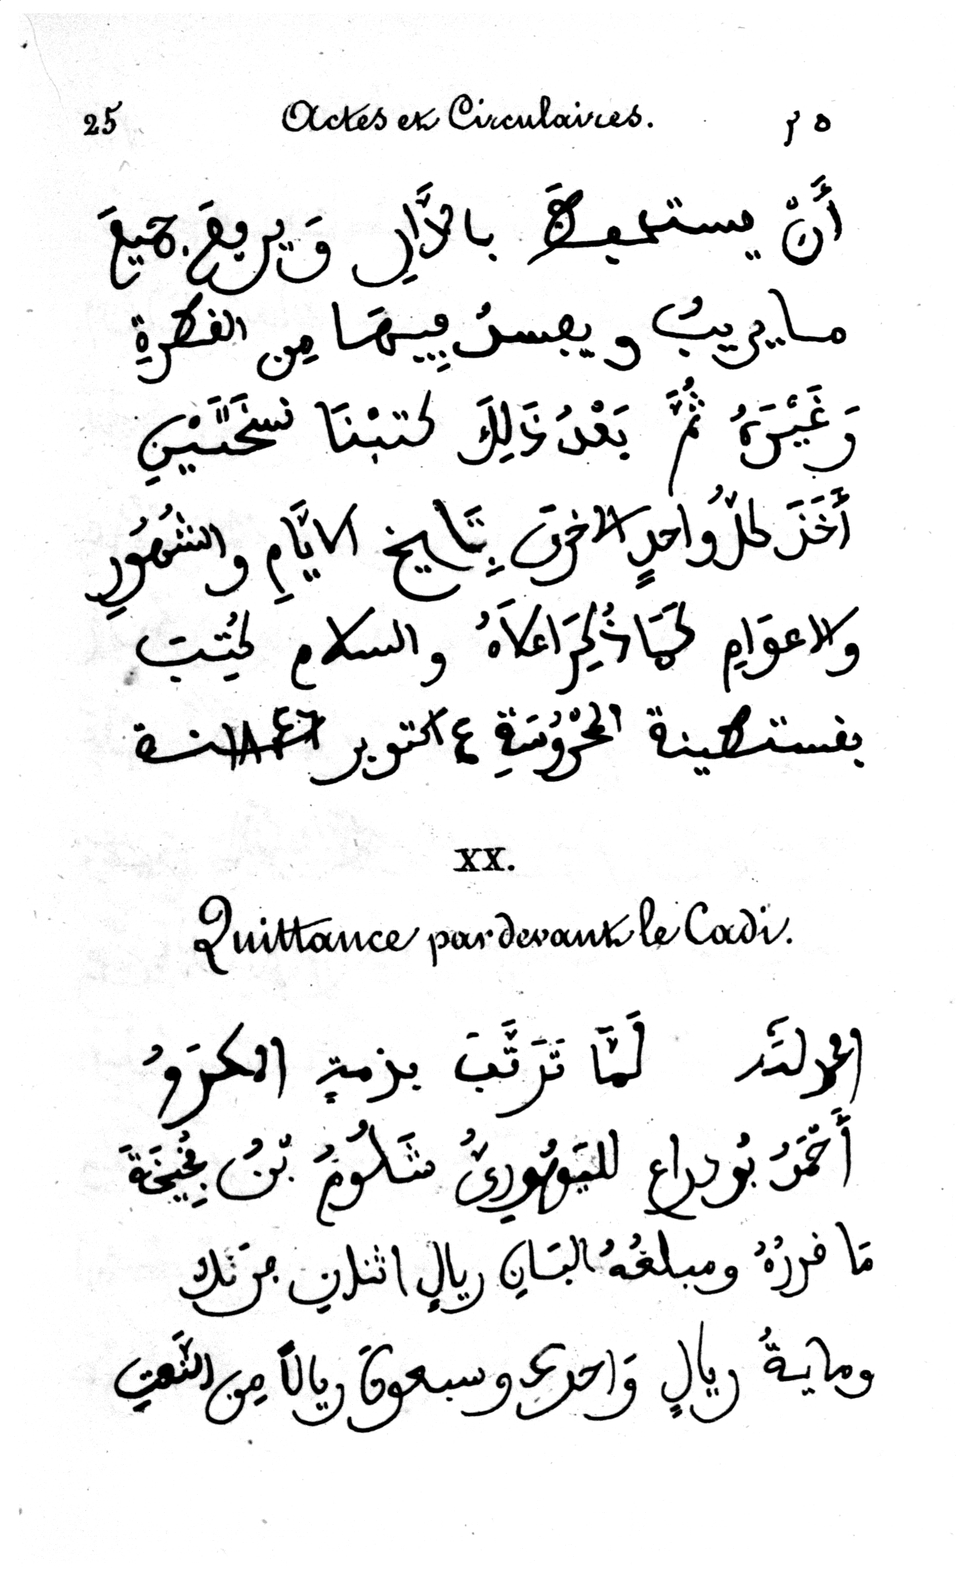 25 Actes et Circulaires. ٢٥
أَنّ يستحفظَ بالدَّارِ وَيرفعَ جميعَ
ما يريبُ ويفسدُ فِيهَا مِن الفكرةِ
وَغَيْرَهُ ثُمَّ بَعْدُ ذَلِكَ كتبْنَا نسخَتَيْنِ
أَخَذَ كلُّ واحدٍ الاخرَى بِتَاريخ الايَّامِ والشهُورِ
والاعوَامِ كمَا ذُكِرَ اعلاَهُ والسلام كُتِبَ
بقسنطينة المحْرُوسَةِ ٤ اكتوبر سنة ١٨٤٦
XX.
Quittance pardevant le Cadi.
الحمد لله لَمَّا تَرَتَّبَ بذمةِ المكرَمُ
أَحْمَدُ بُو دراع لليَهُودِيُّ شَلُومُ بْنُ
مَا قدرُهُ ومبلغُهُ اثنانِ
ومايةُ ريالٍ وَاحدى وسبعونَ ريالاً مِن